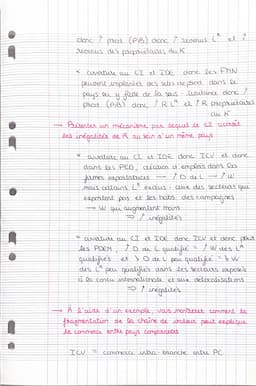 donc ↑ prod (PIB) donc ↑ revenus L^rs et ↑
revenus des propriétaires du K
* ouverture au CI et IDE donc les FMN
peuvent implanter des sites de prod dans le
pays où y fible de la sous-traitance donc ↑
prod (PIB) donc ↑ R L^rs et ↑ R propriétaires
du K
→ Présenter un mécanisme par lequel le CI accroît
les inégalités de R au sein d'un même pays
* ouverture au CI et IDE donc ICV et donc
dans les PED, création d'emplois dans les
firmes exportatrices → ↑ D de L → ↑ W
mais certains L^rs exclus : ceux des secteurs qui
exportent pas et les habs des campagnes
→ W qui augmentent moins
⇒ ↑ inégalités
* ouverture au CI et IDE donc ICV et donc pour
les PDEM, ↑ D de L qualifié = ↑ W des L^rs
qualifiés et ↘ D de L peu qualifié = ↘ W
des L^rs peu qualifiés dans les secteurs exposés
à la concu internationale et aux délocalisations
⇒ ↑ inégalités
→ À l'aide d'un exemple, vous montrerez comment la
fragmentation de la chaîne de valeur peut expliquer
le commerce entre pays comparables
ICV = commerce intra-branche entre PC